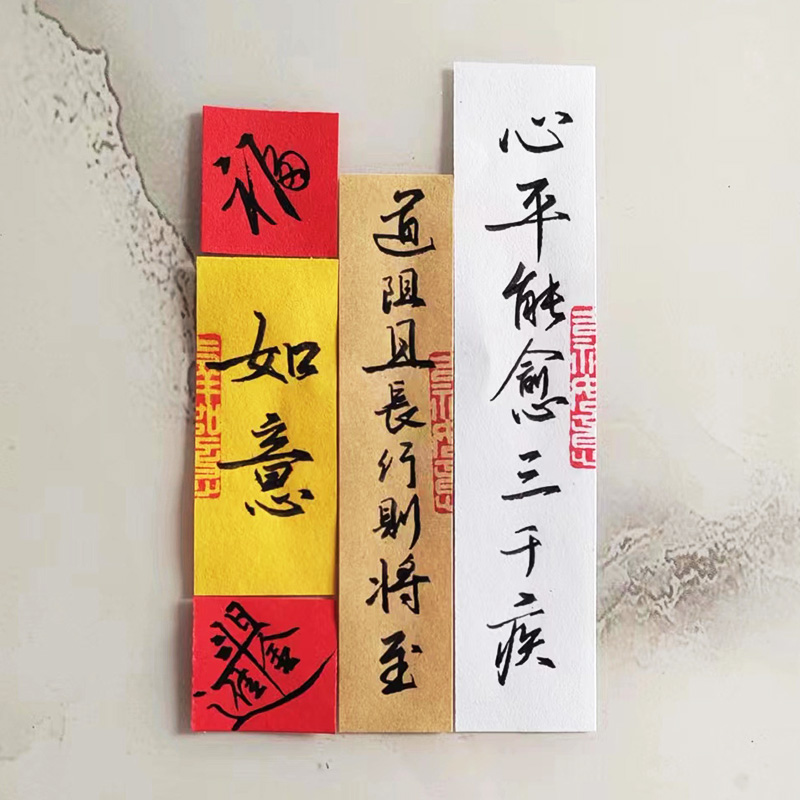 心平能愈三千疾
道阻且長行則將至
福
如意
日進斗金